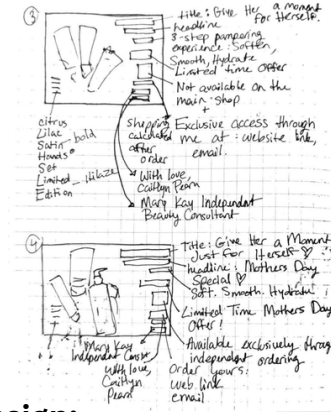 3
title: Give Her a moment
for Herself.
headline
3-step pampering
experience: Soften,
Smooth, Hydrate
Limited time Offer
Not available on the
main shop
+
Exclusive access through
me at: website link,
email.
citrus
Lilac
Satin - bold
Hands
Set
Limited
Edition
shopping
calculated
after
order
With love,
Caitlyn Pearn
Mary Kay Independent
Beauty Consultant
4
Title: Give Her a Moment
Just for Herself ♡
headline: Mothers Day
Special ♡
Soft. Smooth. Hydrate
Limited Time Mothers Day
Offer!
Available exclusively through
independent ordering
Order yours:
web link
email
Mary Kay
Independent Const
With love,
Caitlyn
Pearn